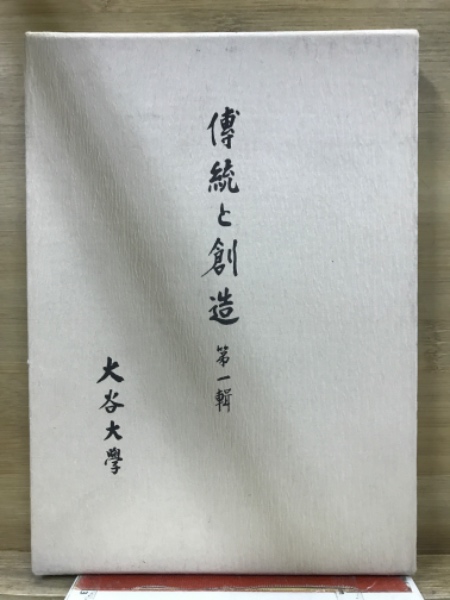 傳統と創造 第一輯
大谷大學